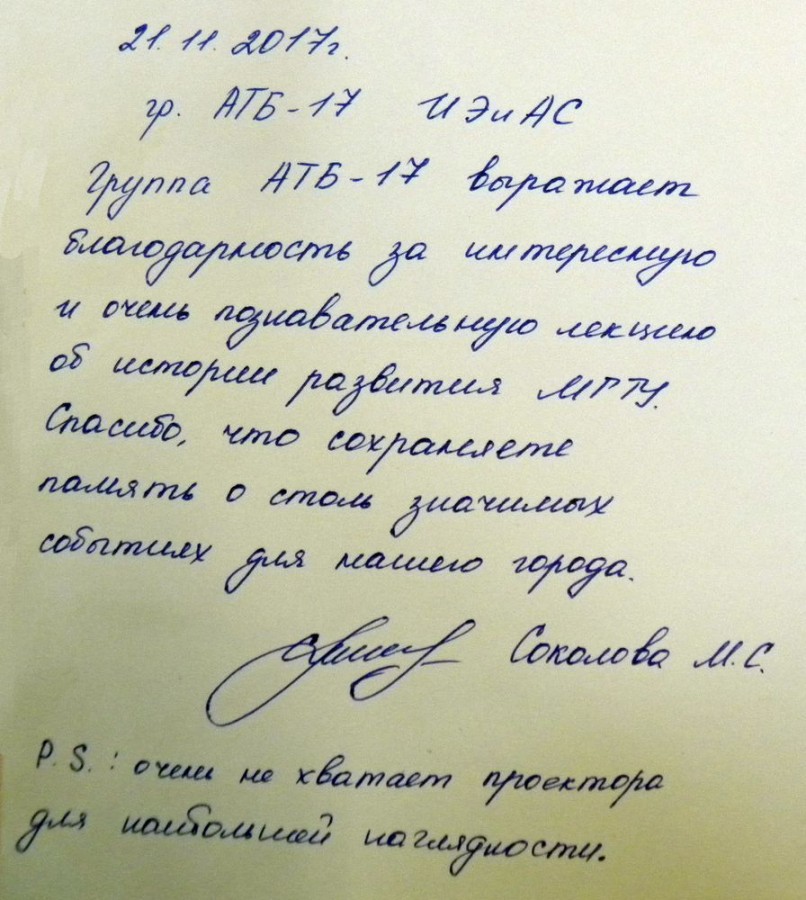 21.11.2017г.
гр. АТБ-17 ИЭиАС
Группа АТБ-17 выражает
благодарность за интересную
и очень познавательную лекцию
об истории развития МГТУ.
Спасибо, что сохраняете
память о столь значимых
событиях для нашего города.
Соколова М.С.
P.S.: очень не хватает проектора
для наибольшей наглядности.